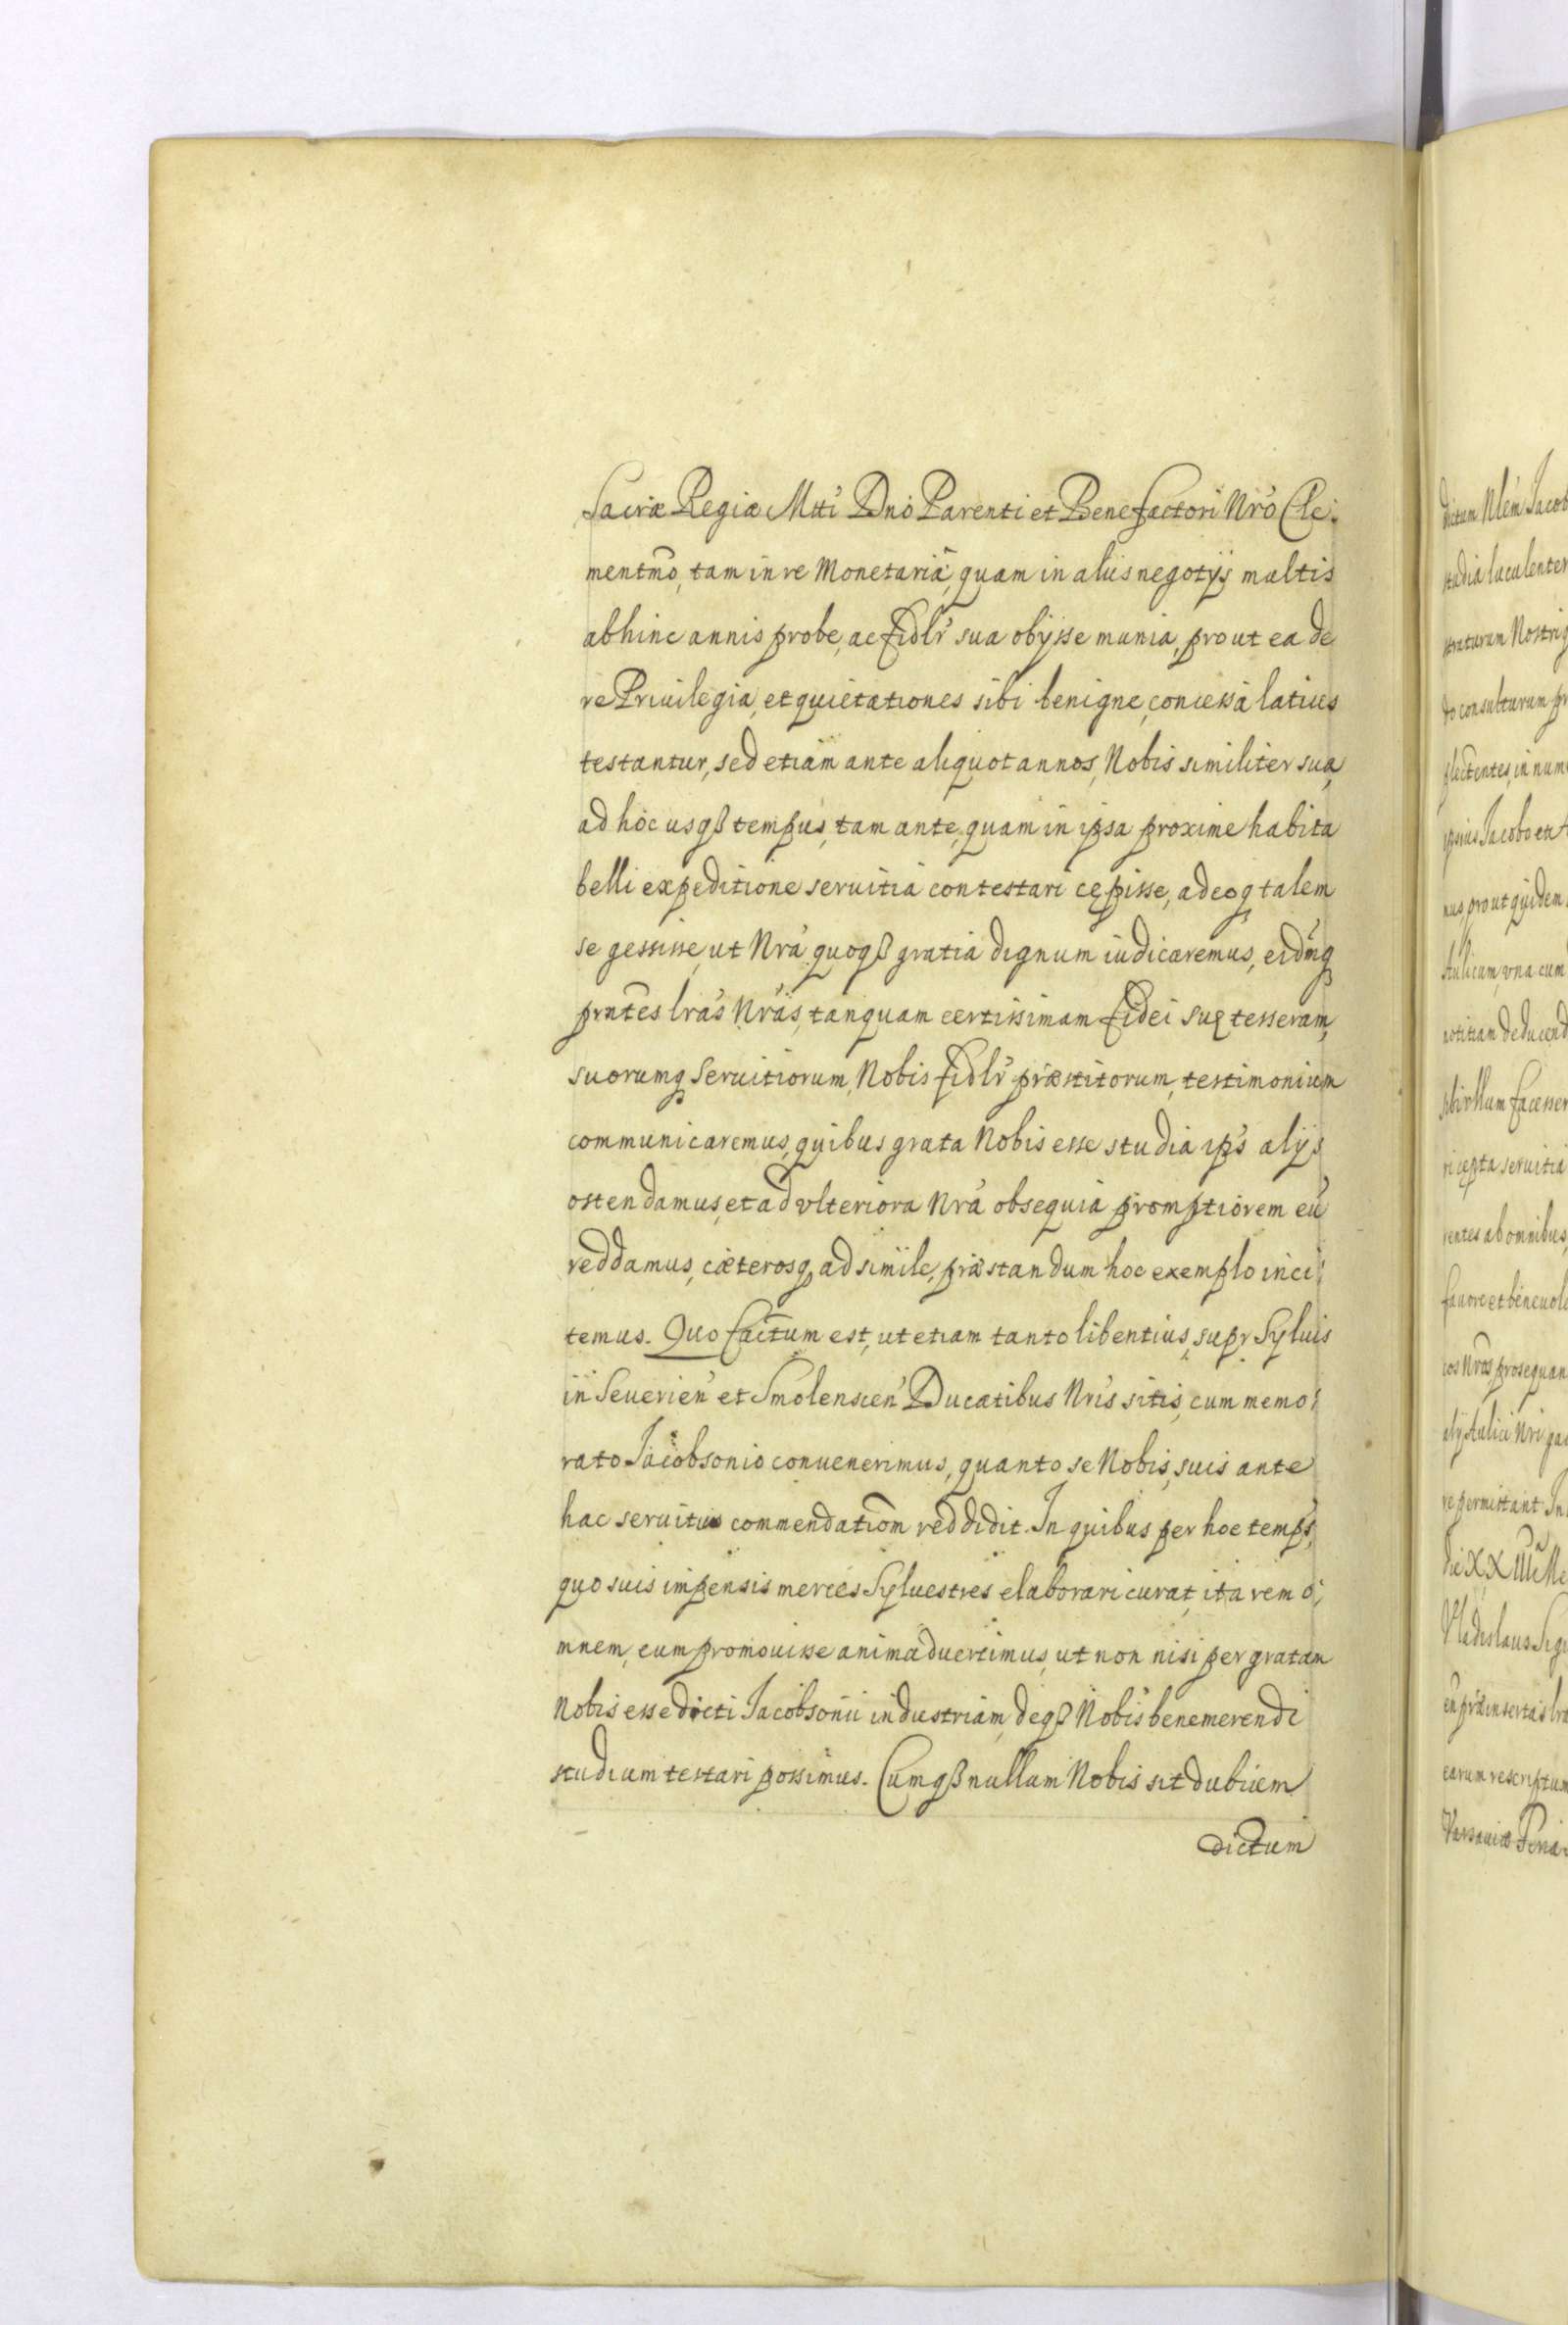 Sacræ Regiæ Mtti Dno Parenti et Benefactori Nro Cle:
mentmo, tam in re Monetariâ, quam in aliis negotÿs multis
abhinc annis probe, ac fidlr sua obÿsse munia, prout ea de
re Priuilegia, et quietationes sibi benigne, concessa latius
testantur, sed etiam ante aliquot annos, Nobis similiter sua,
ad hoc usqß tempus, tam ante, quam in ipsa proxime habita
belli expeditione seruitia contestari cępisse, adeoq talem
se gessisse, ut Nra quoqß gratia dignum iudicaremus, eidmq
prntes lras Nras, tanquam certissimam fidei suę tesseram,
suorumq Seruitiorum, Nobis fidlr præstitorum, testimonium
communicaremus, quibus grata Nobis esse studia ips alÿs
ostendamus, et ad vlteriora Nra obsequia promptiorem eu
reddamus, cæterosq, ad simile, præstandum hoc exemplo inci:
temus. Quo factum est, ut etiam tanto libentius, supr Syluis
in Seuerien et Smolenscen Ducatibus Nris sitis, cum memo:
rato Jacobsonio conuenerimus, quanto se Nobis, suis ante
hac seruitus commendatiom reddidit. In quibus per hoc temps,
quo suis impensis merces Syluestres elaborari curat, ita rem o:
mnem, eum promouisse animaduertimus, ut non nisi per gratam
Nobis esse dicti Jacobsonii industriam, deqß Nobis benemerendi
studium testari possimus. Cumqß nullum Nobis sit dubium
dictum
dictum Nlem Jacob
studia luculenter
Nostri
do consulturum pr
flectentes, in num
ipsius Jacobo et
nus prout quidem
Aulicum, vna cum
notitiam deducend
sibi vllum facesser
ri cępta seruitia
rentes ab omnibus
fauore et beneuole
cos Nros prosequan
alÿ Aulici Nri
re permittant In
die XXIIIIa Me
Vladislaus Sigi
en præinsertas lra
earum rescriptum
Varsauiæ Feria